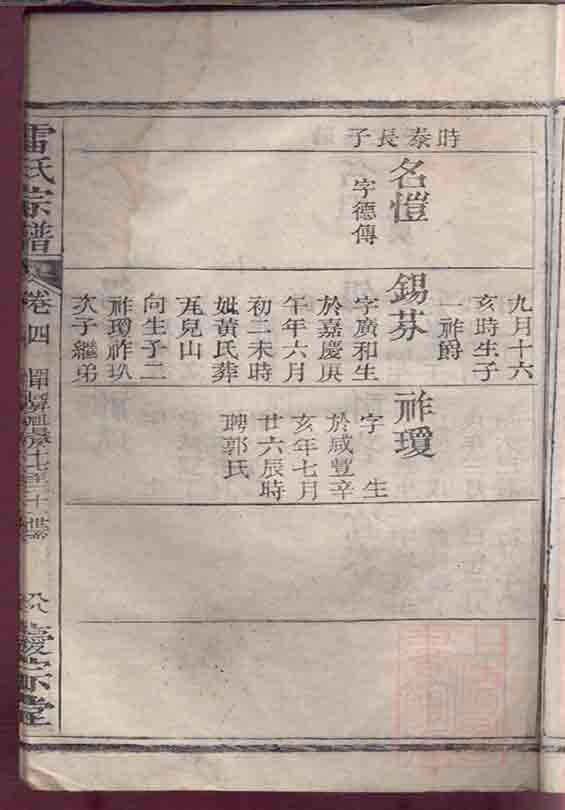 時泰長子
名愷
字德傳
九月十六
亥時生子
一祚爵
錫芬
字廣和生
於嘉慶庚
午年六月
初二未時
妣黃氏葬
瓦兒山
向生子二
祚瓊祚玖
次子繼弟
祚瓊
字 生
於咸豐辛
亥年七月
廿六辰時
聘郭氏
雷氏宗譜
卷四
八
慶宗堂